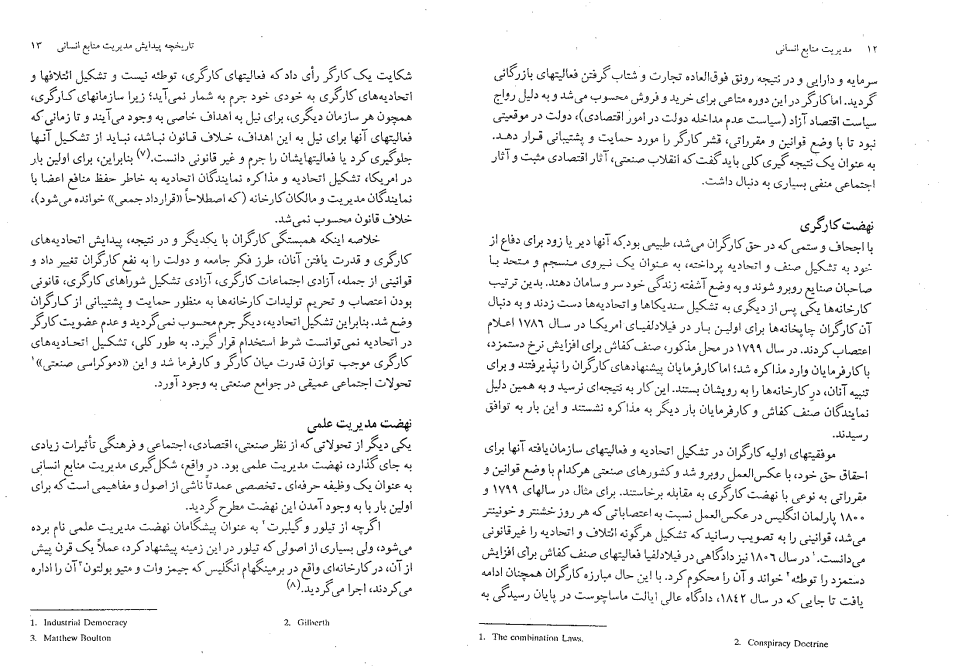 ۱۲ مدیریت منابع انسانی
سرمایه و دارایی و در نتیجه رونق فوق‌العاده تجارت و شتاب گرفتن فعالیتهای بازرگانی
گردید. اما کارگر در این دوره متاعی برای خرید و فروش محسوب می‌شد و به دلیل رواج
سیاست اقتصاد آزاد (سیاست عدم مداخله دولت در امور اقتصادی)، دولت در موقعیتی
نبود تا با وضع قوانین و مقرراتی، قشر کارگر را مورد حمایت و پشتیبانی قرار دهد.
به عنوان یک نتیجه‌گیری کلی باید گفت که انقلاب صنعتی، آثار اقتصادی مثبت و آثار
اجتماعی منفی بسیاری به دنبال داشت.
نهضت کارگری
با اجحاف و ستمی که در حق کارگران می‌شد، طبیعی بود که آنها دیر یا زود برای دفاع از
خود به تشکیل صنف و اتحادیه پرداخته، به عنوان یک نیروی منسجم و متحد با
صاحبان صنایع روبرو شوند و به وضع آشفته زندگی خود سر و سامان دهند. بدین ترتیب
کارخانه‌ها یکی پس از دیگری به تشکیل سندیکاها و اتحادیه‌ها دست زدند و به دنبال
آن کارگران چاپخانه‌ها برای اولین بار در فیلادلفیای امریکا در سال ۱۷۸۶ اعلام
اعتصاب کردند. در سال ۱۷۹۹ در محل مذکور، صنف کفاش برای افزایش نرخ دستمزد،
با کارفرمایان وارد مذاکره شد؛ اما کارفرمایان پیشنهادهای کارگران را نپذیرفتند و برای
تنبیه آنان، در کارخانه‌ها را به رویشان بستند. این کار به نتیجه‌ای نرسید و به همین دلیل
نمایندگان صنف کفاش و کارفرمایان بار دیگر به مذاکره نشستند و این بار به توافق
رسیدند.
موفقیتهای اولیه کارگران در تشکیل اتحادیه و فعالیتهای سازمان‌یافته آنها برای
احقاق حق خود، با عکس‌العمل روبرو شد و کشورهای صنعتی هرکدام با وضع قوانین و
مقرراتی به نوعی با نهضت کارگری به مقابله برخاستند. برای مثال در سالهای ۱۷۹۹ و
۱۸۰۰ پارلمان انگلیس در عکس‌العمل نسبت به اعتصاباتی که هر روز خشنتر و خونینتر
می‌شد، قوانینی را به تصویب رسانید که تشکیل هرگونه ائتلاف و اتحادیه را غیرقانونی
می‌دانست.۱ در سال ۱۸۰۶ نیز دادگاهی در فیلادلفیا فعالیتهای صنف کفاش برای افزایش
دستمزد را توطئه۲ خواند و آن را محکوم کرد. با این حال مبارزه کارگران همچنان ادامه
یافت تا جایی که در سال ۱۸۴۲، دادگاه عالی ایالت ماساچوست در پایان رسیدگی به
1. The combination Laws.
2. Conspiracy Doctrine
تاریخچه پیدایش مدیریت منابع انسانی ۱۳
شکایت یک کارگر رأی داد که فعالیتهای کارگری، توطئه نیست و تشکیل ائتلافها و
اتحادیه‌های کارگری به خودی خود جرم به شمار نمی‌آید؛ زیرا سازمانهای کارگری،
همچون هر سازمان دیگری، برای نیل به اهداف خاصی به وجود می‌آیند و تا زمانی که
فعالیتهای آنها برای نیل به این اهداف، خلاف قانون نباشد، نباید از تشکیل آنها
جلوگیری کرد یا فعالیتهایشان را جرم و غیر قانونی دانست.(۷) بنابراین، برای اولین بار
در امریکا، تشکیل اتحادیه و مذاکره نمایندگان اتحادیه به خاطر حفظ منافع اعضا با
نمایندگان مدیریت و مالکان کارخانه (که اصطلاحاً «قرارداد جمعی» خوانده می‌شود)،
خلاف قانون محسوب نمی‌شد.
خلاصه اینکه همبستگی کارگران با یکدیگر و در نتیجه، پیدایش اتحادیه‌های
کارگری و قدرت یافتن آنان، طرز فکر جامعه و دولت را به نفع کارگران تغییر داد و
قوانینی از جمله، آزادی اجتماعات کارگری، آزادی تشکیل شوراهای کارگری، قانونی
بودن اعتصاب و تحریم تولیدات کارخانه‌ها به منظور حمایت و پشتیبانی از کارگران
وضع شد. بنابراین تشکیل اتحادیه، دیگر جرم محسوب نمی‌گردید و عدم عضویت کارگر
در اتحادیه نمی‌توانست شرط استخدام قرار گیرد. به طور کلی، تشکیل اتحادیه‌های
کارگری موجب توازن قدرت میان کارگر و کارفرما شد و این «دموکراسی صنعتی»۱
تحولات اجتماعی عمیقی در جوامع صنعتی به وجود آورد.
نهضت مدیریت علمی
یکی دیگر از تحولاتی که از نظر صنعتی، اقتصادی، اجتماعی و فرهنگی تأثیرات زیادی
به جای گذارد، نهضت مدیریت علمی بود. در واقع، شکل‌گیری مدیریت منابع انسانی
به عنوان یک وظیفه حرفه‌ای ـ تخصصی عمدتاً ناشی از اصول و مفاهیمی است که برای
اولین بار با به وجود آمدن این نهضت مطرح گردید.
اگرچه از تیلور و گیلبرت۲ به عنوان پیشگامان نهضت مدیریت علمی نام برده
می‌شود، ولی بسیاری از اصولی که تیلور در این زمینه پیشنهاد کرد، عملاً یک قرن پیش
از آن، در کارخانه‌ای واقع در برمینگهام انگلیس که جیمز وات و متیو بولتون۳ آن را اداره
می‌کردند، اجرا می‌گردید.(۸)
1. Industrial Democracy
2. Gilberth
3. Matthew Boulton